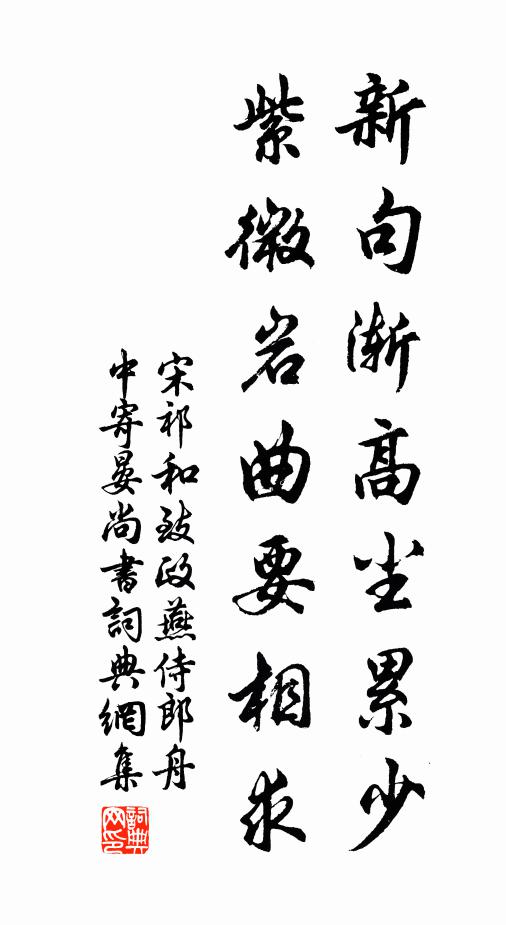 新句渐高尘累少
紫微岩曲要相求
宋祁和致政燕侍郎舟
中寄晏尚書詞典網集
詞典
网印